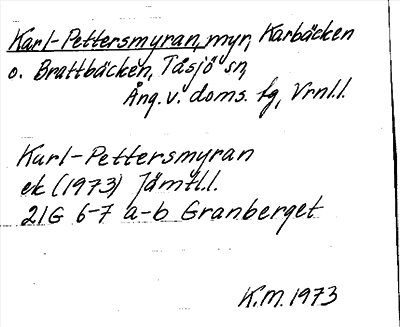 Karl-Pettersmyran, myr, Karbäcken
o. Brattbäcken, Tåsjö sn,
Ång. v. doms. fg, Vrnl.l.
Karl-Pettersmyran
ek (1973) Jämtl.l.
21G 6-7 a-b Granberget
K.M. 1973